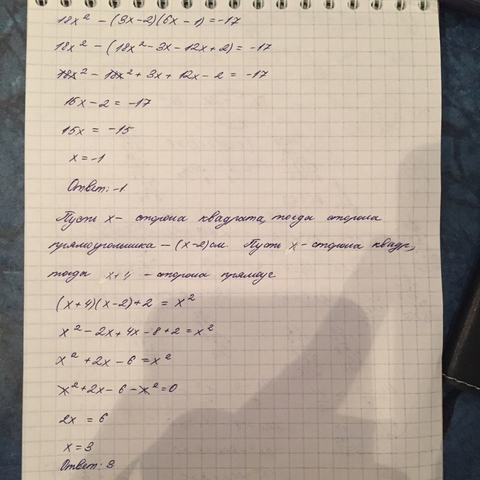 18x² - (3x-2)(6x-1) = -17
18x² - (18x² - 3x - 12x + 2) = -17
18x² - 18x² + 3x + 12x - 2 = -17
15x - 2 = -17
15x = -15
x = -1
Ответ: -1
Пусть x - сторона квадрата, тогда сторона
прямоугольника - (x-2)см Пусть x - сторона квадр,
тогда x+4 - сторона прямоуг
(x+4)(x-2)+2 = x²
x² - 2x + 4x - 8 + 2 = x²
x² + 2x - 6 = x²
x² + 2x - 6 - x² = 0
2x = 6
x = 3
Ответ: 3